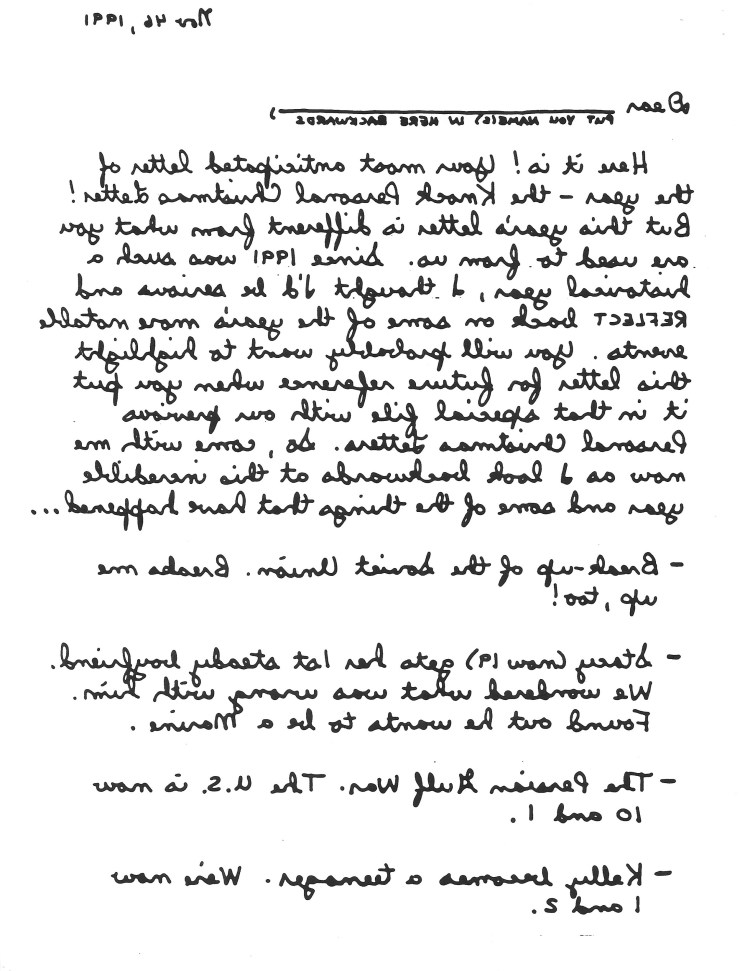 Nov 46, 1991
Dear ____________________,
PUT YOU NAME(S) IN HERE BACKWARDS
Here it is! Your most anticipated letter of
the year – the Knoch Personal Christmas Letter!
But this year's letter is different from what you
are used to from us. Since 1991 was such a
historical year, I thought I'd be serious and
REFLECT back on some of the year's more notable
events. You will probably want to highlight
this letter for future reference when you put
it in that special file with our previous
Personal Christmas Letters. So, come with me
now as I look backwards at this incredible
year and some of the things that have happened...
- Break-up of the Soviet Union. Breaks me
up, too!
- Stacy (now 19) gets her 1st steady boyfriend.
We wondered what was wrong with him.
Found out he wants to be a Marine.
- The Persian Gulf War. The U.S. is now
10 and 1.
- Kelly becomes a teenager. We're now
1 and 2.